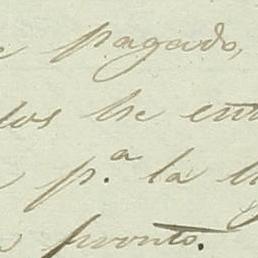 pagado,
los he
p.ª la
pronto.